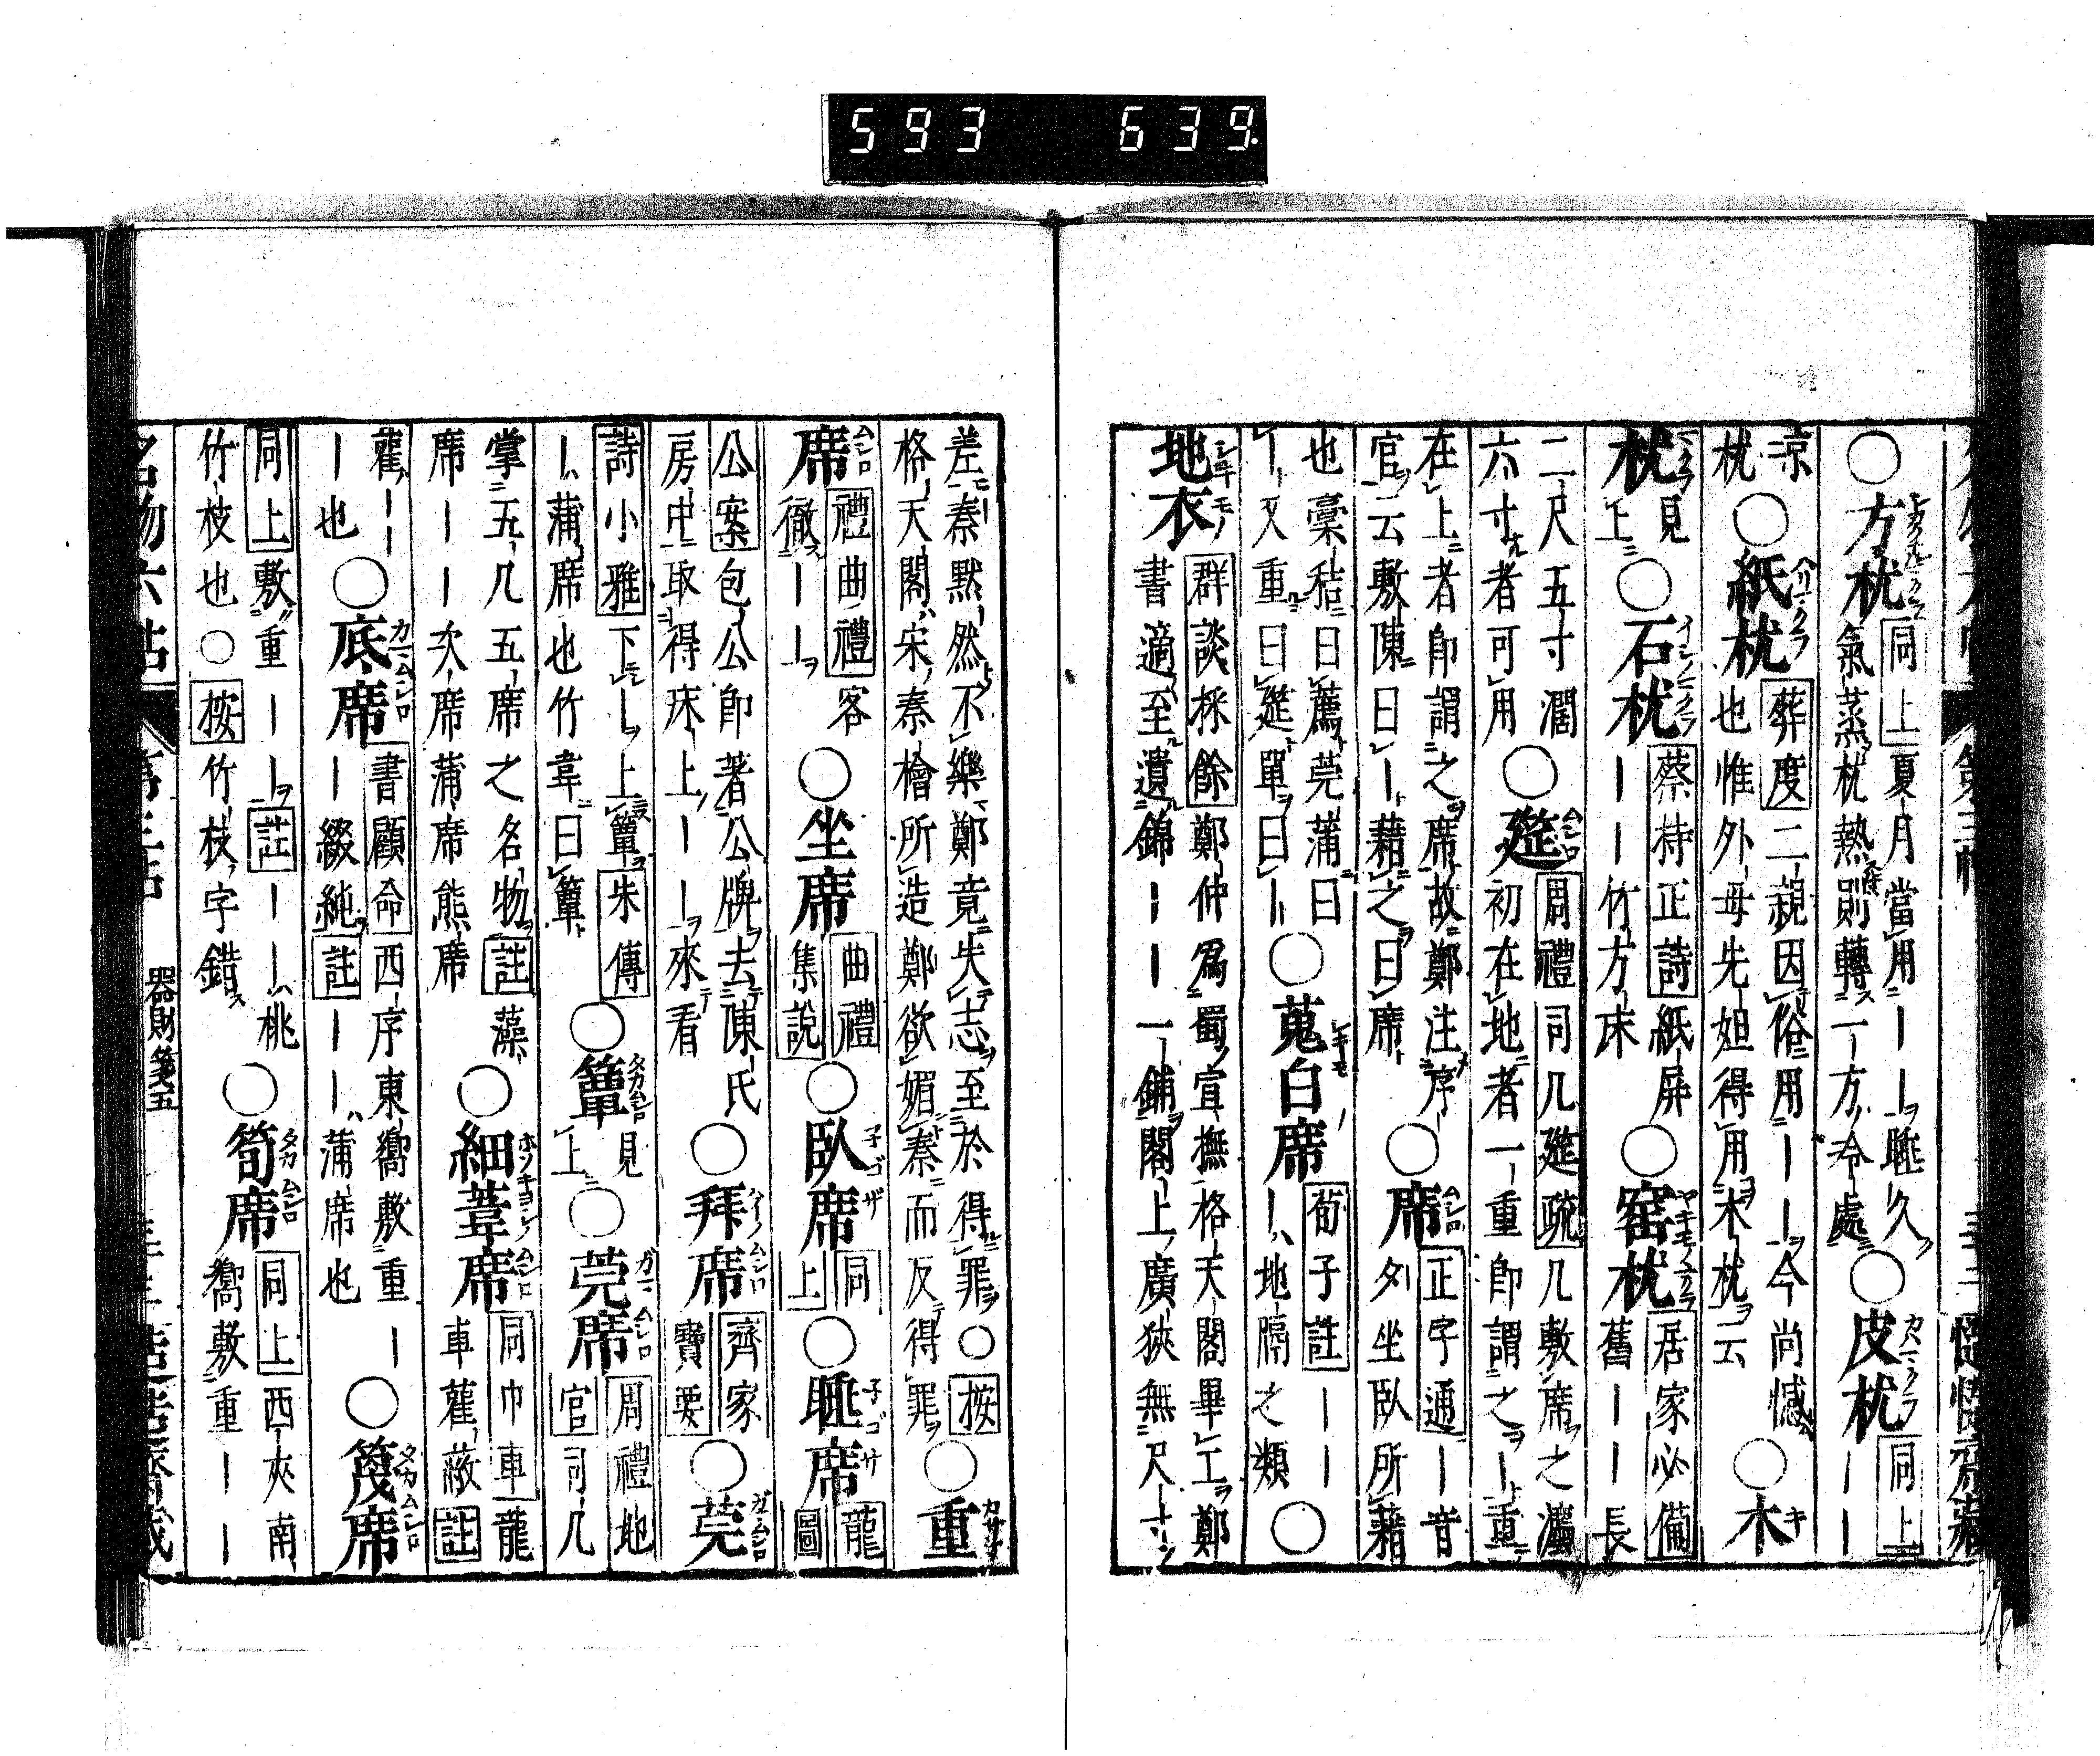 593 639
○方枕 同上夏月當用——睡久
氣蒸枕熱則轉一方冷處○皮枕 同上
——
凉
枕○紙枕 葬度二親因俗用——今尚憾
也惟外母先妲得用木枕云○木
枕 見
上○石枕 蔡持正詩紙屏
——竹方床○窑枕 居家必備
舊——長
二尺五寸濶
六寸者可用○筵 周禮司几筵疏几敷席之灋
初在地者一重即謂之—重
在上者即謂之席故鄭注序
官云敷陳曰—藉之曰席○席 正字通—昔
夕坐臥所藉
也稾秸曰薦莞蒲曰
—又重曰筵單曰—○蒐白席 荀子註——
—地隔之類○
地衣 群談採餘鄭仲為蜀宣撫格天閣畢工鄭
書適至遺錦——一鋪閣上廣狹無尺寸
差秦默然不樂鄭竟失志至於得罪○按
格天閣宋秦檜所造鄭欲媚秦而反得罪○重
席 禮曲禮客
徹——○坐席 曲禮
集說○臥席 同
上○睡席 龍
圖
公案包公即著公牌去陳氏
房中取得床上——來看○拜席 齊家
寶要○莞
詩小雅下—上簟朱傳
—蒲席也竹葦曰簟○簟 見
上○莞席 周禮地
官司几
掌五几五席之名物註藻
席——次席蒲席熊席○細葦席 同巾車龍
車雚蔽註
雚——
—也○底席 書顧命西序東嚮敷重—
—綴純註——蒲席也○篾席
同上敷重——註——桃
竹枝也○按竹枝字錯○筍席 同上西夾南
嚮敷重——
器財箋五